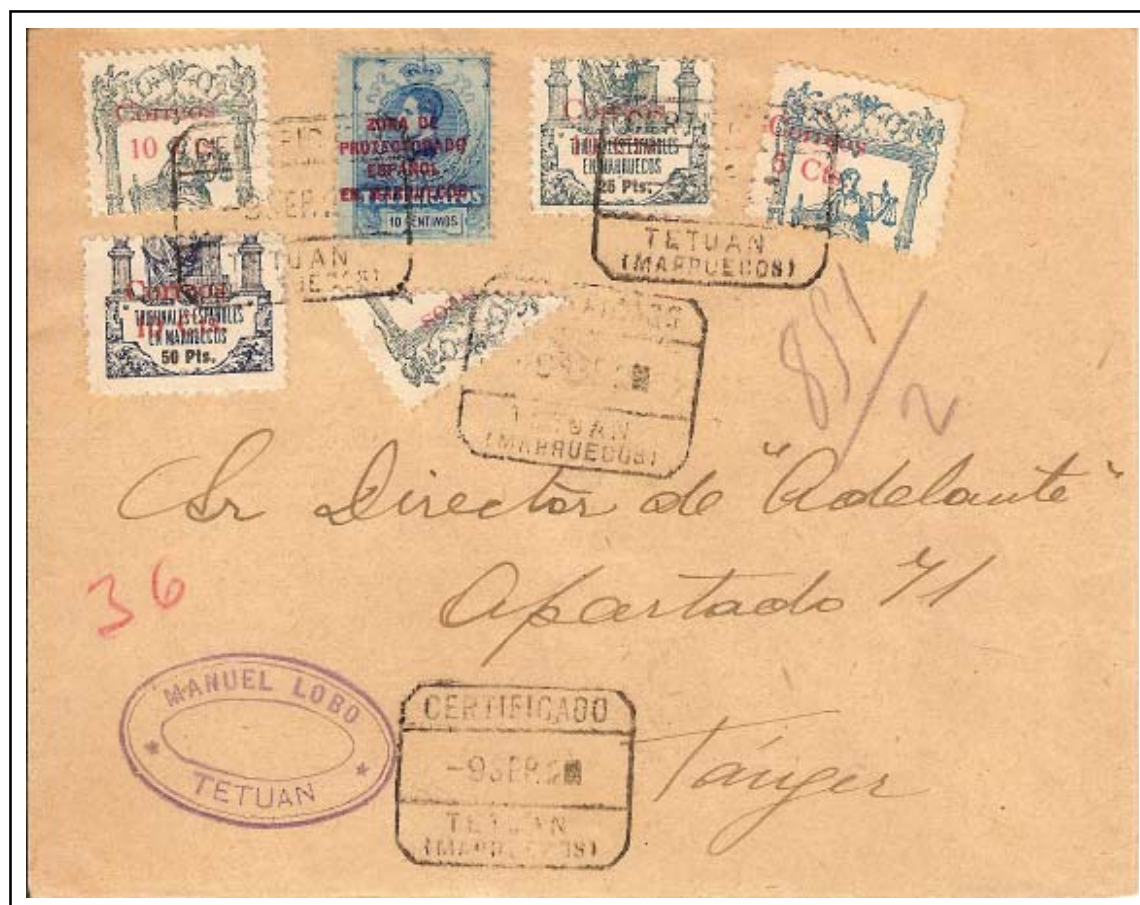 Correos
10 Cts
ZONA DE
PROTECTORADO
ESPAÑOL
EN MARRUECOS
10 CENTIMOS
Correos
TRIBUNALES ESPAÑOLES
EN MARRUECOS
25 Pts.
Correos
5 Cts
TETUAN
TETUAN
(MARRUECOS)
Correos
TRIBUNALES ESPAÑOLES
EN MARRUECOS
50 Pts.
TETUAN
(MARRUECOS)
Sr Director de "Adelante"
Apartado 71
36
Tánger
MANUEL LOBO
TETUAN
CERTIFICADO
-9 SEP. 2
TETUAN
(MARRUECOS)